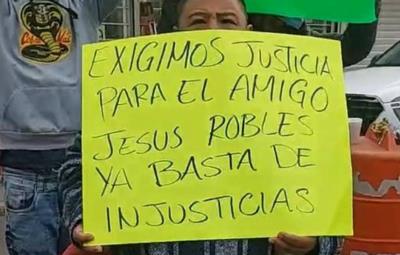 EXIGIMOS JUSTICIA
PARA EL AMIGO
JESUS ROBLES
YA BASTA DE
INJUSTICIAS